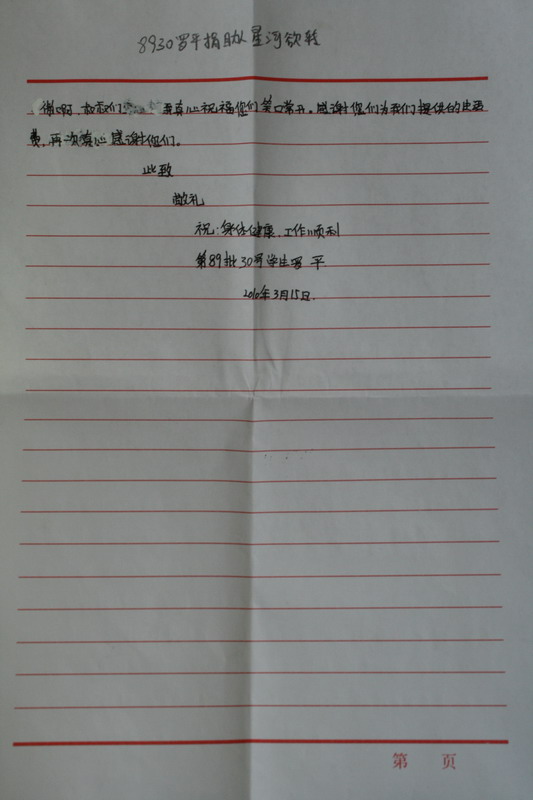 8930罗平捐助人星河欲转
谢叔叔们 我真心祝福您们笑口常开。感谢您们为我们提供的生活
费,再次真心感谢您们。
此致
敬礼
祝:身体健康,工作顺利
第89批30号学生罗平
2010年3月15日.
第 页